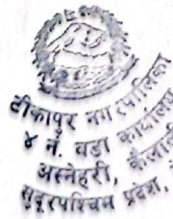 टीकापुर नगरपालिका
४ नं. वडा कार्यालय
अस्नेहरी, कैलाली
सुदूरपश्चिम प्रदेश,